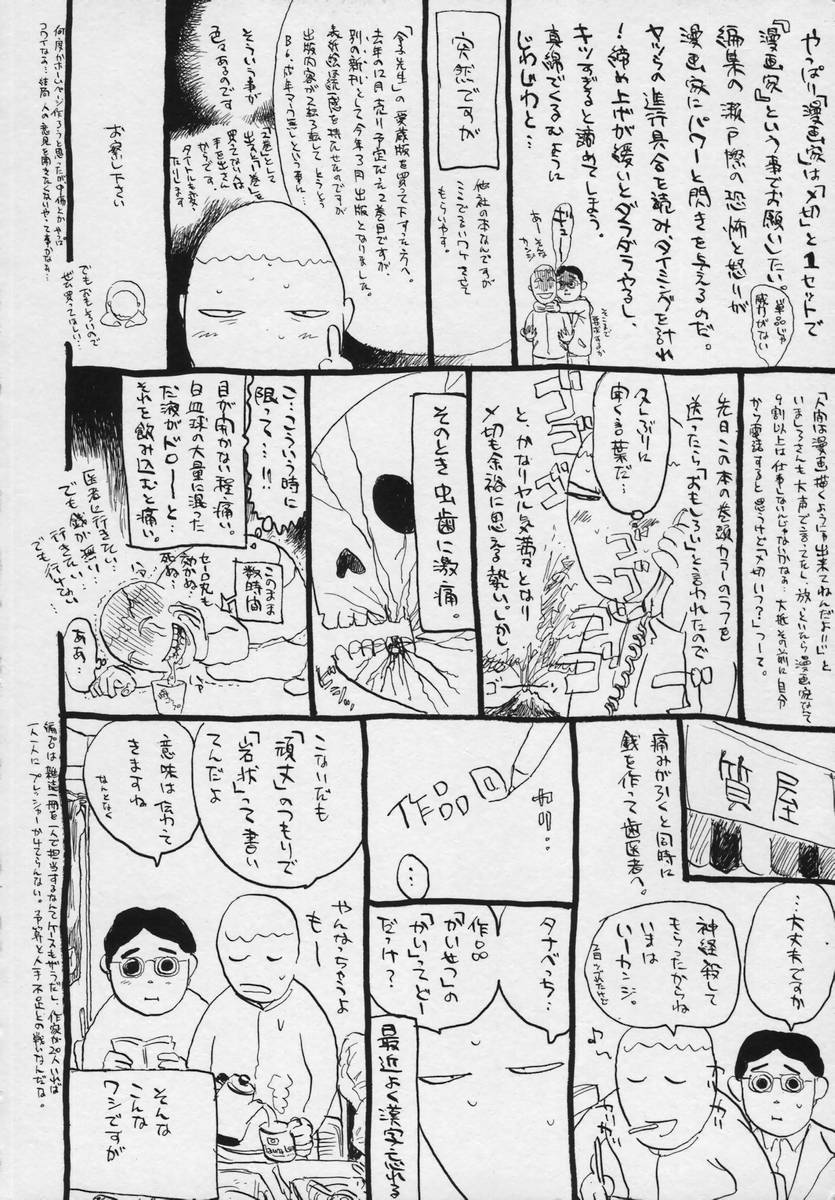 やっぱり「漫画家」は「〆切」と1セットで
『漫画家』という事でお願いしたい。
編集の瀬戸際の恐怖と怒りが
漫画家にパワーと閃きを与えるのだ。
ヤツらの進行具合を読み、タイミングを計れ
!締め上げが緩いとダラダラやるし、
キツすぎると諦めてしまう。
真綿でくるむように
じわじわと…
単品じゃ
威力がない
ギュ
あーそんな
カンジ
そこまで
要求するか
突然ですが
他社の本なんですが
ここでない口を立て
もらいやす。
「金子先生」の愛蔵版を買って下すった方へ。
去年の12月売り予定だった2巻目ですが、
別の新刊として今年3月出版となりました。
表紙絵は統一感を持たせたのですが
出版内容が二転三転して、とうとう
B6、成年マーク無しという事に…
「2巻」として
出すと「1巻」を
買ってない人は
手を出さん
からです。
タイトルも変っ
たりします
そういう事が
色々あるのです
お察し下さい
でもおもしろいので
ぜひ買ってほしい…
何度かホームページ作ろうと思ったが中傷とかやっぱ
コワイなぁ…結局、人の意見を聞きたくないやって事かなぁ…
「人間は漫画描くように出来てねんだよ!!」と
いましろさんも大声で言ってたし、放っといたら漫画家なんて
9割以上は仕事しないんじゃないかなぁ。大抵その前に自分
から電話すると思うけど「〆切いつ?」つーて。
先日この本の巻頭カラーのラフを
送ったら「おもしろい」と言われたので
久しぶりに
聞く言葉だ…
ゴゴゴゴ
ゴゴゴ
ゴ
と、かなりヤル気満々となり
〆切も余裕に思える勢い。しか
そのとき虫歯に激痛。
こ…こういう時に
限って…!!
目が開かない程痛い。
白血球の大量に混った
だ液がドローーと…
それを飲み込むと痛い。
このまま
数時間
セーロ丸も
効かぬ…
死ぬ…
医者に行きたい
でも銭が無い…
行きたい…
行きてぃ…
でも
ああ…
質屋
痛みが引くと同時に
銭を作って歯医者へ。
…大丈夫ですか
神経殺して
もらったからね
いまは
いーカンジ。
2日つぶれたけど
カリカリ
カリカリ
作品回
カリ…
…
タナベっち…
作品
「かいせつ」の
「かい」ってどー
だっけ?
最近よく漢字忘れる
こないだも
「頑丈」のつもりで
「岩状」って書い
てんだよ
意味は伝わって
きますね
なんとなく
やんなっちゃうよ
もー
そんな
こんな
ワシですが
編プロは雑誌一冊を一人で担当するなんてケースもザラだし、作家が20人いれば
一人一人にプレッシャーかけてらんない。予算と人手不足との戦いなんだな。